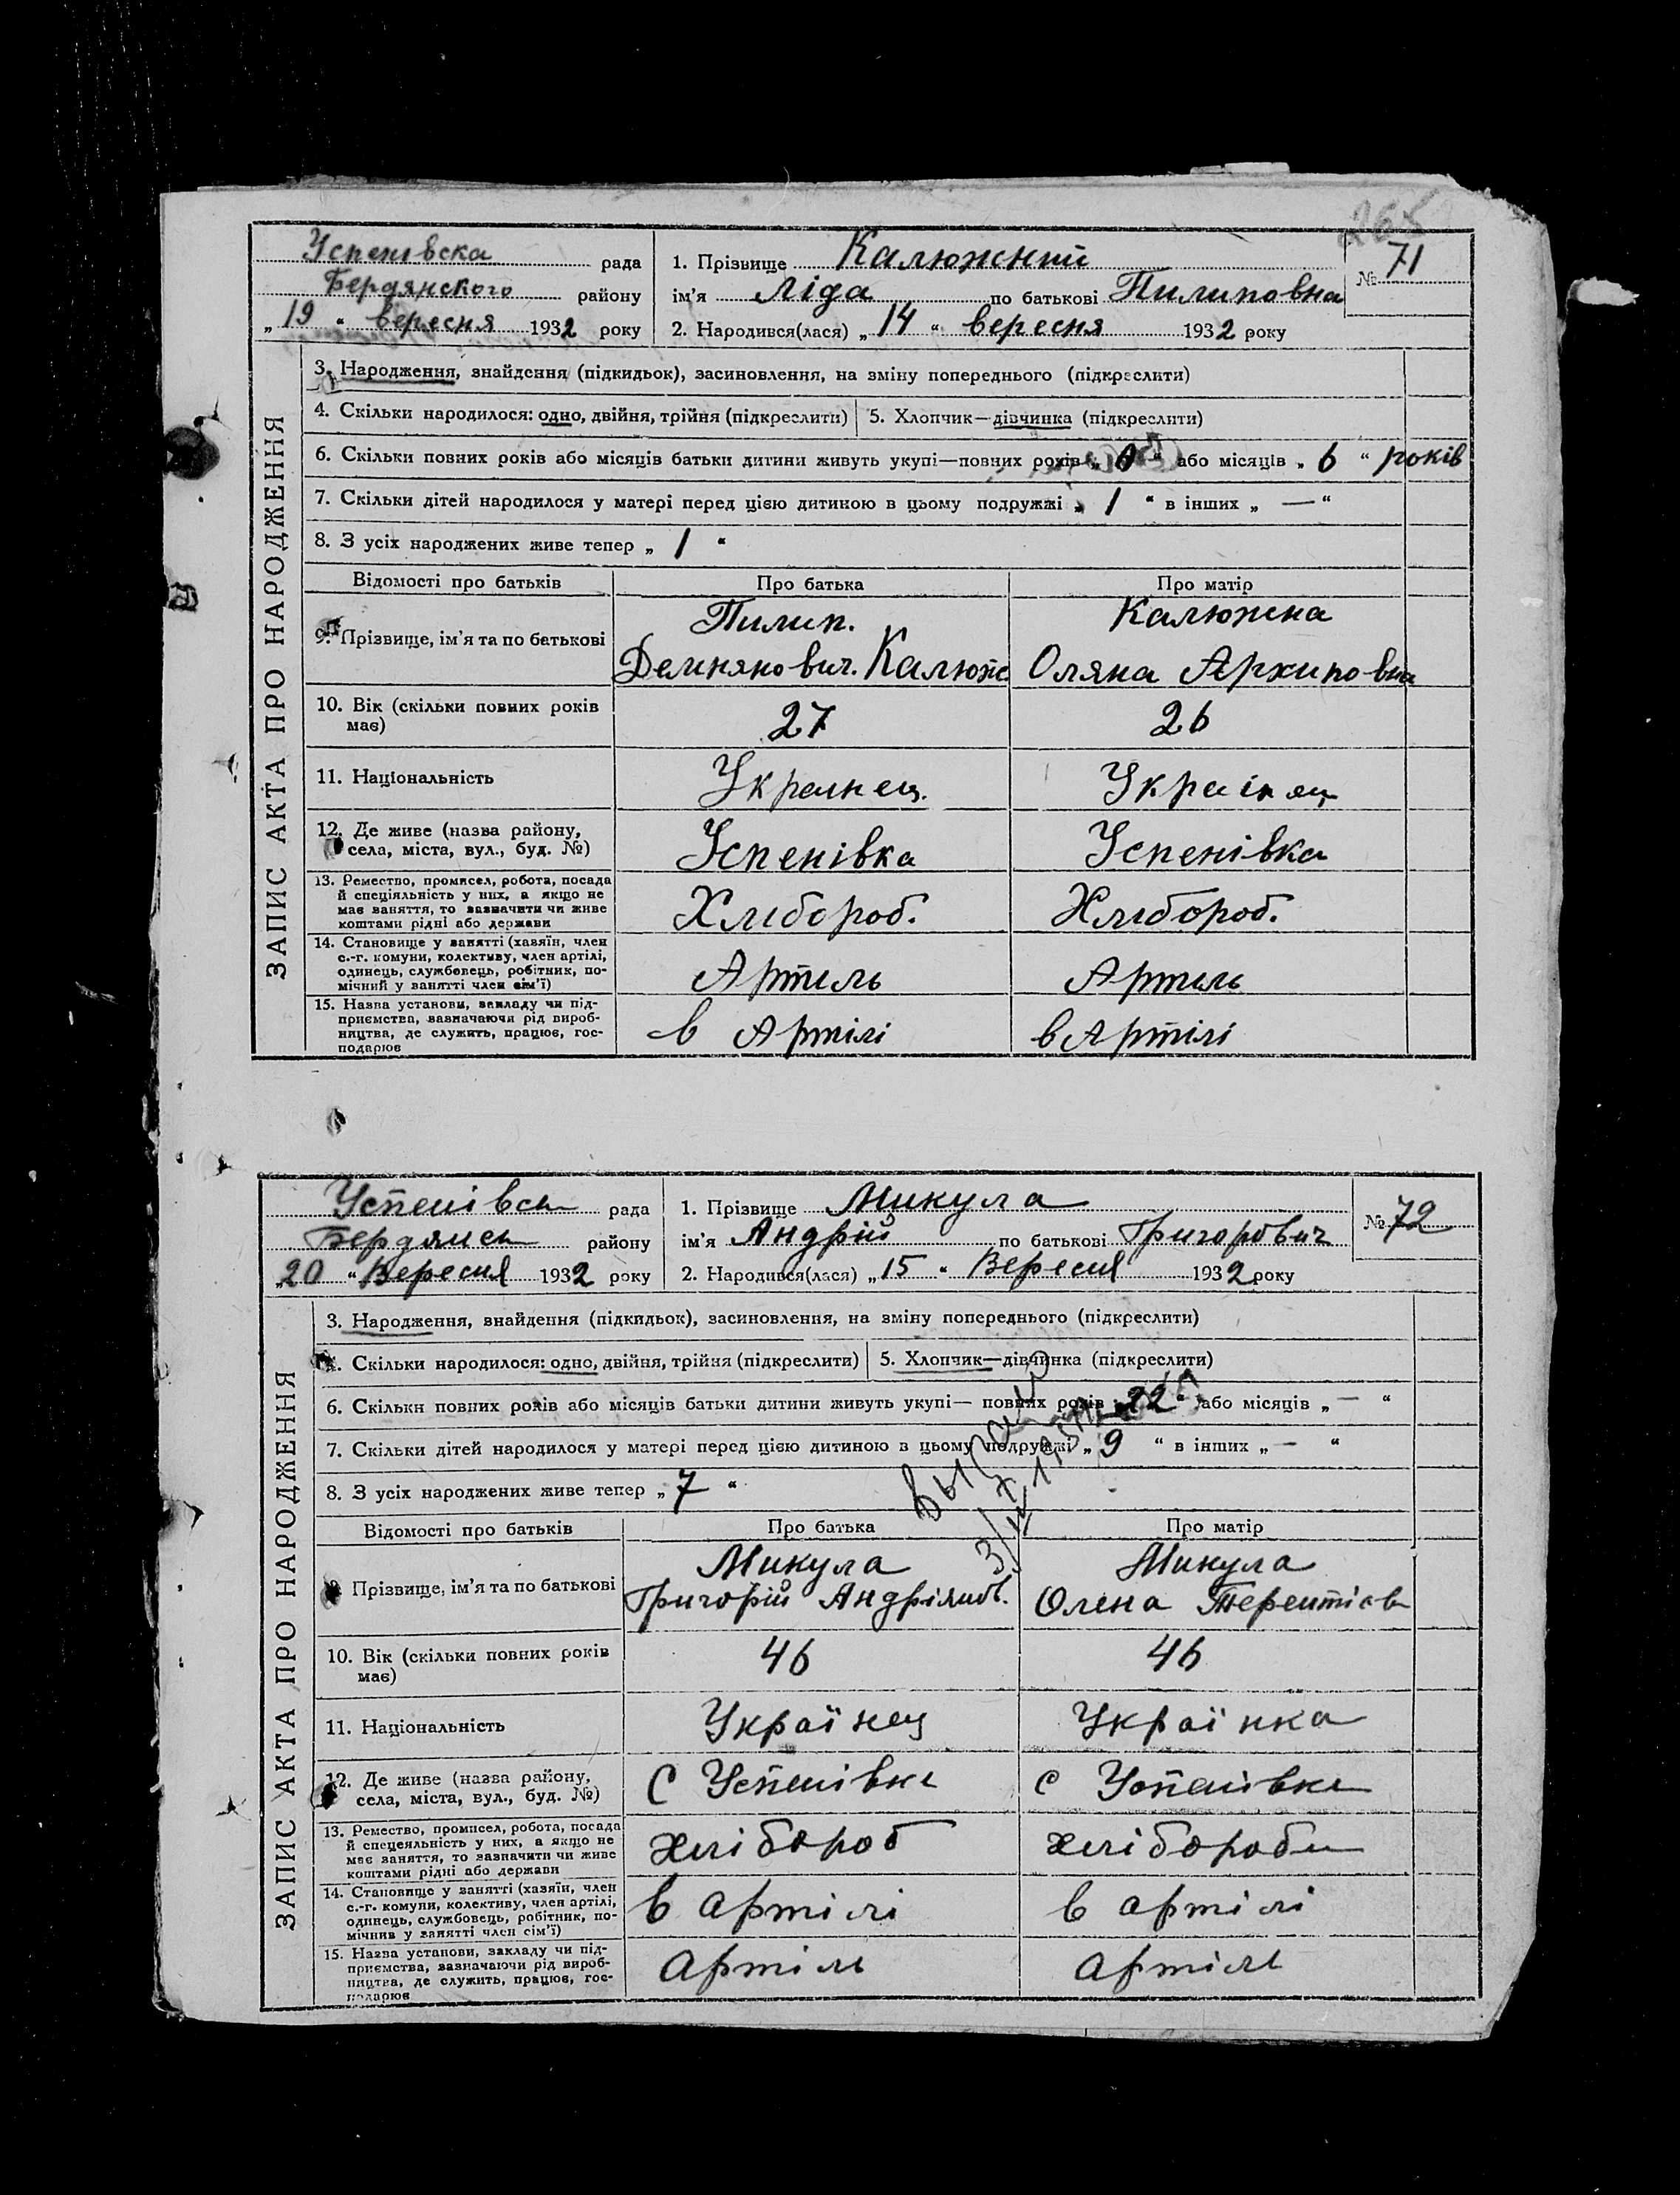 265
Успенівска рада
Бердянского району
„19“ вересня 1932 року
1. Прізвище Калюжний
ім’я Ліда по батькові Пилиповна
2. Народився(лася) „14“ вересня 1932 року
№ 71
ЗАПИС АКТА ПРО НАРОДЖЕННЯ
3. Народження, знайдення (підкидьок), засиновлення, на зміну попереднього (підкреслити)
4. Скільки народилося: одно, двійня, трійня (підкреслити) 5. Хлопчик—дівчинка (підкреслити)
6. Скільки повних років або місяців батьки дитини живуть укупі—повних років „ “ або місяців „6“ років
7. Скільки дітей народилося у матері перед цією дитиною в цьому подружжі „1“ в інших „—“
8. З усіх народжених живе тепер „1“
Відомості про батьків Про батька Про матір
9. Прізвище, ім’я та по батькові
Пилип. Калюжна
Демнянович. Калюж Оляна Архиповна
10. Вік (скільки повних років 27 26
має)
11. Національність Украінец. Украінец
12. Де живе (назва району, Успенівка Успенівка
села, міста, вул., буд. №)
13. Ремество, промисел, робота, посада Хлібороб. Хлібороб.
й спеціяльність у них, а якщо не
має заняття, то зазначити чи живе
коштами рідні або держави
14. Становище у занятті (хазяїн, член Артиль Артиль
с.-г. комуни, колективу, член артілі,
одинець, службовець, робітник, по-
мічний у занятті член сім’ї)
15. Назва установи, закладу чи під- в Артілі в Артілі
приємства, зазначаючи рід вироб-
ництва, де служить, працює, гос-
подарює
Успенівськ рада
Бердянськ району
„20“ Вересня 1932 року
1. Прізвище Микула
ім’я Андрій по батькові Григорович
2. Народився(лася) „15“ Вересня 1932 року
№ 72
ЗАПИС АКТА ПРО НАРОДЖЕННЯ
3. Народження, знайдення (підкидьок), засиновлення, на зміну попереднього (підкреслити)
4. Скільки народилося: одно, двійня, трійня (підкреслити) 5. Хлопчик—дівчинка (підкреслити)
6. Скільки повних років або місяців батьки дитини живуть укупі— повних років „22“ або місяців „—“
7. Скільки дітей народилося у матері перед цією дитиною в цьому подружжі „9“ в інших „—“
8. З усіх народжених живе тепер „7“
Відомості про батьків Про батька Про матір
Прізвище, ім’я та по батькові
Микула Микула
Григорій Андріянов. Олена Терентієв
10. Вік (скільки повних років 46 46
має)
11. Національність Українец Українка
12. Де живе (назва району, С Успенівка с Успенівка
села, міста, вул., буд. №)
13. Ремество, промисел, робота, посада хлібороб хлібороби
й спецеяльність у них, а якщо не
має заняття, то зазначити чи живе
коштами рідні або держави
14. Становище у занятті (хазяїн, член в артілі в артілі
с.-г. комуни, колективу, член артілі,
одинець, службовець, робітник, по-
мічнив у занятті член сім’ї)
15. Назва установи, закладу чи під- артіль артіль
приємства, зазначаючи рід вироб-
ництва, де служить, працює, гос-
подарює